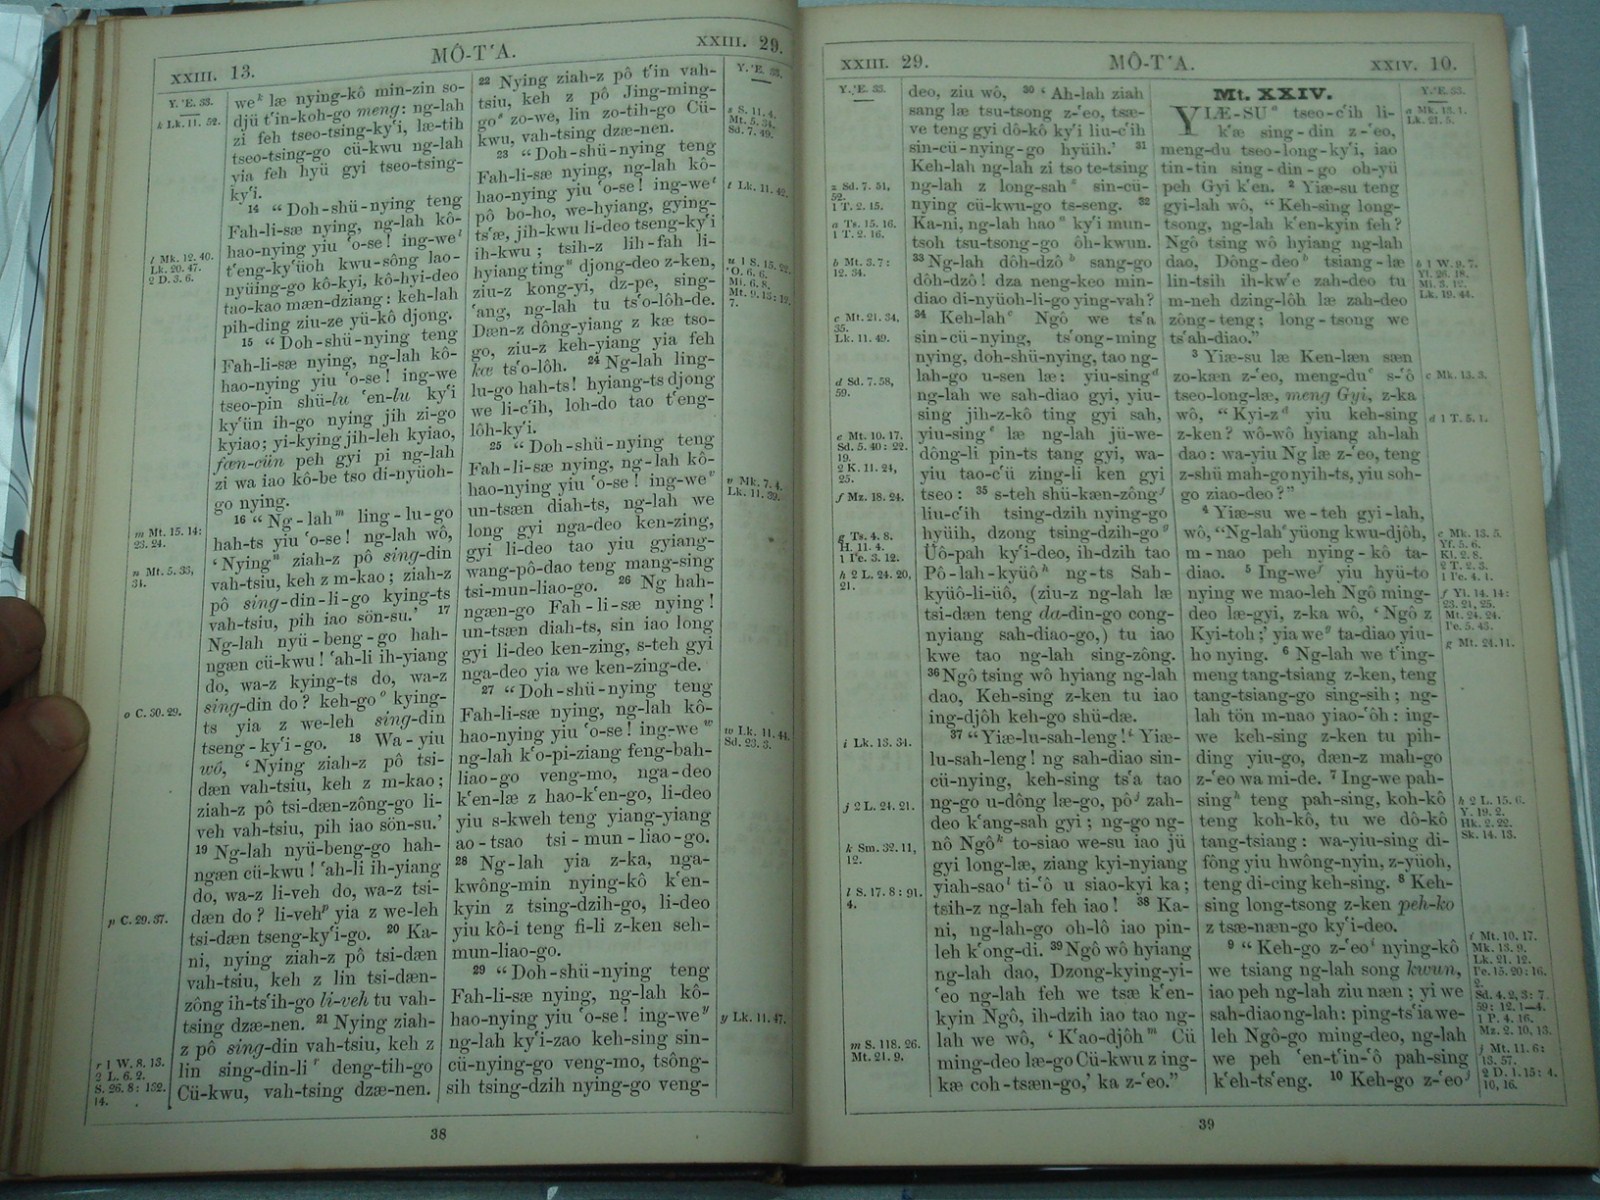 XXIII. 13.
MÔ-TʻA.
XXIII. 29.
Y. ʻE. 33.
k Lk. 11. 52.
l Mk. 12. 40.
Lk. 20. 47.
2 D. 3. 6.
m Mt. 15. 14:
23. 24.
n Mt. 5. 33,
34.
o C. 30. 29.
p C. 29. 37.
r 1 W. 8. 13.
2 L. 6. 2.
S. 26. 8: 132.
14.
weᵏ læ nying-kô min-zin so-
djü tʻin-koh-go meng: ng-lah
zi feh tseo-tsing-kyʻi, læ-tih
tseo-tsing-go cü-kwu ng-lah
yia feh hyü gyi tseo-tsing-
kyʻi.
14 “Doh-shü-nying teng
Fah-li-sæ nying, ng-lah kô-
hao-nying yiu ʻo-se! ing-weˡ
tʻeng-kyʻüoh kwu-sông lao-
nyüing-go kô-kyi, kô-hyi-deo
tao-kao mæn-dziang: keh-lah
pih-ding ziu-ze yü-kô djong.
15 “Doh-shü-nying teng
Fah-li-sæ nying, ng-lah kô-
hao-nying yiu ʻo-se! ing-we
tseo-pin shü-lu ʻen-lu kyʻi
kyʻün ih-go nying jih zi-go
kyiao; yi-kying jih-leh kyiao,
fæn-cün peh gyi pi ng-lah
zi wa iao kô-be tso di-nyüoh-
go nying.
16 “Ng-lahᵐ ling-lu-go
hah-ts yiu ʻo-se! ng-lah wô,
‘Nyingⁿ ziah-z pô sing-din
vah-tsiu, keh z m-kao; ziah-z
pô sing-din-li-go kying-ts
vah-tsiu, pih iao sön-su.’ 17
Ng-lah nyü-beng-go hah-
ngæn cü-kwu! ʻah-li ih-yiang
do, wa-z kying-ts do, wa-z
sing-din do? keh-goᵒ kying-
ts yia z we-leh sing-din
tseng-kyʻi-go. 18 Wa-yiu
wô, ‘Nying ziah-z pô tsi-
dæn vah-tsiu, keh z m-kao;
ziah-z pô tsi-dæn-zông-go li-
veh vah-tsiu, pih iao sön-su.’
19 Ng-lah nyü-beng-go hah-
ngæn cü-kwu! ʻah-li ih-yiang
do, wa-z li-veh do, wa-z tsi-
dæn do? li-vehᵖ yia z we-leh
tsi-dæn tseng-kyʻi-go. 20 Ka-
ni, nying ziah-z pô tsi-dæn
vah-tsiu, keh z lin tsi-dæn-
zông ih-tsʻih-go li-veh tu vah-
tsing dzæ-nen. 21 Nying ziah-
z pô sing-din vah-tsiu, keh z
lin sing-din-liʳ deng-tih-go
Cü-kwu, vah-tsing dzæ-nen.
22 Nying ziah-z pô tʻin vah-
tsiu, keh z pô Jing-ming-
goˢ zo-we, lin zo-tih-go Cü-
kwu, vah-tsing dzæ-nen.
23 “Doh-shü-nying teng
Fah-li-sæ nying, ng-lah kô-
hao-nying yiu ʻo-se! ing-weᵗ
pô bo-ho, we-hyiang, gying-
tsʻæ, jih-kwu li-deo tseng-kyʻi
ih-kwu; tsih-z lih-fah li-
hyiang tingᵘ djong-deo z-ken,
ziu-z kong-yi, dz-pe, sing-
ʻang, ng-lah tu tsʻo-lôh-de.
Dæn-z dông-yiang z kæ tso-
go, ziu-z keh-yiang yia feh
kæ tsʻo-lôh. 24 Ng-lah ling-
lu-go hah-ts! hyiang-ts djong
we li-cʻih, loh-do tao tʻeng-
lôh-kyʻi.
25 “Doh-shü-nying teng
Fah-li-sæ nying, ng-lah kô-
hao-nying yiu ʻo-se! ing-weᵛ
un-tsæn diah-ts, ng-lah we
long gyi nga-deo ken-zing,
gyi li-deo tao yiu gyiang-
wang-pô-dao teng mang-sing
tsi-mun-liao-go. 26 Ng hah-
ngæn-go Fah-li-sæ nying!
un-tsæn diah-ts, sin iao long
gyi li-deo ken-zing, s-teh gyi
nga-deo yia we ken-zing-de.
27 “Doh-shü-nying teng
Fah-li-sæ nying, ng-lah kô-
hao-nying yiu ʻo-se! ing-weʷ
ng-lah kʻo-pi-ziang feng-bah-
liao-go veng-mo, nga-deo
kʻen-læ z hao-kʻen-go, li-deo
yiu s-kweh teng yiang-yiang
ao-tsao tsi-mun-liao-go.
28 Ng-lah yia z-ka, nga-
kwông-min nying-kô kʻen-
kyin z tsing-dzih-go, li-deo
yiu kô-i teng fi-li z-ken seh-
mun-liao-go.
29 “Doh-shü-nying teng
Fah-li-sæ nying, ng-lah kô-
hao-nying yiu ʻo-se! ing-weʸ
ng-lah kyʻi-zao keh-sing sin-
cü-nying-go veng-mo, tsông-
sih tsing-dzih nying-go veng-
Y. ʻE. 33.
s S. 11. 4.
Mt. 5. 34.
Sd. 7. 49.
t Lk. 11. 42.
u 1 S. 15. 22.
ʻO. 6. 6.
Mi. 6. 8.
Mt. 9. 13: 12.
7.
v Mk. 7. 4.
Lk. 11. 39.
w Lk. 11. 44.
Sd. 23. 3.
y Lk. 11. 47.
38
XXIII. 29.
MÔ-TʻA.
XXIV. 10.
Y. ʻE. 33.
z Sd. 7. 51,
52.
1 T. 2. 15.
a Ts. 15. 16.
1 T. 2. 16.
b Mt. 3. 7:
12. 34.
c Mt. 21. 34,
35.
Lk. 11. 49.
d Sd. 7. 58,
59.
e Mt. 10. 17.
Sd. 5. 40: 22.
19.
2 K. 11. 24,
25.
f Mz. 18. 24.
g Ts. 4. 8.
H. 11. 4.
1 Ie. 3. 12.
h 2 L. 24. 20,
21.
i Lk. 13. 34.
j 2 L. 24. 21.
k Sm. 32. 11,
12.
l S. 17. 8: 91.
4.
m S. 118. 26.
Mt. 21. 9.
deo, ziu wô, 30 ‘Ah-lah ziah
sang læ tsu-tsong z-ʻeo, tsæ-
ve teng gyi dô-kô kyʻi liu-cʻih
sin-cü-nying-go hyüih.’ 31
Keh-lah ng-lah zi tso te-tsing
ng-lah z long-sahᶻ sin-cü-
nying cü-kwu-go ts-seng. 32
Ka-ni, ng-lah haoᵃ kyʻi mun-
tsoh tsu-tsong-go ôh-kwun.
33 Ng-lah dôh-dzôᵇ sang-go
dôh-dzô! dza neng-keo min-
diao di-nyüoh-li-go ying-vah?
34 Keh-lahᶜ Ngô we tsʻa
sin-cü-nying, tsʻong-ming
nying, doh-shü-nying, tao ng-
lah-go u-sen læ: yiu-singᵈ
ng-lah we sah-diao gyi, yiu-
sing jih-z-kô ting gyi sah,
yiu-singᵉ læ ng-lah jü-we-
dông-li pin-ts tang gyi, wa-
yiu tao-cʻü zing-li ken gyi
tseo: 35 s-teh shü-kæn-zôngᶠ
liu-cʻih tsing-dzih nying-go
hyüih, dzong tsing-dzih-goᵍ
Üô-pah kyʻi-deo, ih-dzih tao
Pô-lah-kyüôʰ ng-ts Sah-
kyüô-li-üô, (ziu-z ng-lah læ
tsi-dæn teng da-din-go cong-
nyiang sah-diao-go,) tu iao
kwe tao ng-lah sing-zông.
36 Ngô tsing wô hyiang ng-lah
dao, Keh-sing z-ken tu iao
ing-djôh keh-go shü-dæ.
37 “Yiæ-lu-sah-leng!ⁱ Yiæ-
lu-sah-leng! ng sah-diao sin-
cü-nying, keh-sing tsʻa tao
ng-go u-dông læ-go, pôʲ zah-
deo kʻang-sah gyi; ng-go ng-
nô Ngôᵏ to-siao we-su iao jü
gyi long-læ, ziang kyi-nyiang
yiah-saoˡ ti-ʻô u siao-kyi ka;
tsih-z ng-lah feh iao! 38 Ka-
ni, ng-lah-go oh-lô iao pin-
leh kʻong-di. 39 Ngô wô hyiang
ng-lah dao, Dzong-kying-yi-
ʻeo ng-lah feh we tsæ kʻen-
kyin Ngô, ih-dzih iao tao ng-
lah we wô, ‘Kʻao-djôhᵐ Cü
ming-deo læ-go Cü-kwu z ing-
kæ coh-tsæn-go,’ ka z-ʻeo.”
Mt. XXIV.
YIÆ-SUᵃ tseo-cʻih li-
kʻæ sing-din z-ʻeo,
meng-du tseo-long-kyʻi, iao
tin-tin sing-din-go oh-yü
peh Gyi kʻen. 2 Yiæ-su teng
gyi-lah wô, “Keh-sing long-
tsong, ng-lah kʻen-kyin feh?
Ngô tsing wô hyiang ng-lah
dao, Dông-deoᵇ tsiang-læ
lin-tsih ih-kwʻe zah-deo tu
m-neh dzing-lôh læ zah-deo
zông-teng; long-tsong we
tsʻah-diao.”
3 Yiæ-su læ Ken-læn sæn
zo-kæn z-ʻeo, meng-duᶜ s-ʻô
tseo-long-læ, meng Gyi, z-ka
wô, “Kyi-zᵈ yiu keh-sing
z-ken? wô-wô hyiang ah-lah
dao: wa-yiu Ng læ z-ʻeo, teng
z-shü mah-go nyih-ts, yiu soh-
go ziao-deo?”
4 Yiæ-su we-teh gyi-lah,
wô, “Ng-lahᵉ yüong kwu-djôh,
m-nao peh nying-kô ta-
diao. 5 Ing-weᶠ yiu hyü-to
nying we mao-leh Ngô ming-
deo læ-gyi, z-ka wô, ‘Ngô z
Kyi-toh;’ yia weᵍ ta-diao yiu-
ho nying. 6 Ng-lah we tʻing-
meng tang-tsiang z-ken, teng
tang-tsiang-go sing-sih; ng-
lah tön m-nao yiao-ʻôh: ing-
we keh-sing z-ken tu pih-
ding yiu-go, dæn-z mah-go
z-ʻeo wa mi-de. 7 Ing-we pah-
singʰ teng pah-sing, koh-kô
teng koh-kô, tu we dô-kô
tang-tsiang: wa-yiu-sing di-
fông yiu hwông-nyin, z-yüoh,
teng di-cing keh-sing. 8 Keh-
sing long-tsong z-ken peh-ko
z tsæ-næn-go kyʻi-deo.
9 “Keh-go z-ʻeoⁱ nying-kô
we tsiang ng-lah song kwun,
iao peh ng-lah ziu næn; yi we
sah-diao ng-lah: ping-tsʻia we-
leh Ngô-go ming-deo, ng-lah
we peh ʻen-tʻin-ʻô pah-sing
kʻeh-tsʻeng. 10 Keh-go z-ʻeoʲ
Y. ʻE. 33.
a Mk. 13. 1.
Lk. 21. 5.
b 1 W. 9. 7.
Yl. 26. 18.
Mi. 3. 12.
Lk. 19. 44.
c Mk. 13. 3.
d 1 T. 5. 1.
e Mk. 13. 5.
Yf. 5. 6.
Kl. 2. 8.
2 T. 2. 3.
1 Ie. 4. 1.
f Yl. 14. 14:
23. 21, 25.
Mt. 24. 24.
Ie. 5. 43.
g Mt. 24. 11.
h 2 L. 15. 6.
Y. 19. 2.
Hk. 2. 22.
Sk. 14. 13.
i Mt. 10. 17.
Mk. 13. 9.
Lk. 21. 12.
Ie. 15. 20: 16.
2.
Sd. 4. 2, 3: 7.
59: 12. 1—4.
1 P. 4. 16.
Mz. 2. 10, 13.
j Mt. 11. 6:
13. 57.
2 D. 1. 15: 4.
10, 16.
39